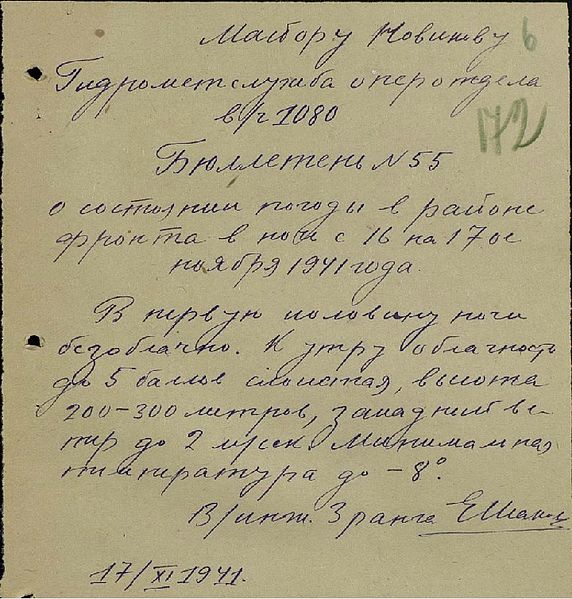 Майору Новикову 6
Гидрометслужба оперотдела
в/ч 1080
172
Бюллетень N 55
о состоянии погоды в районе
фронта в ночь с 16 на 17ое
ноября 1941 года.
В первую половину ночи
безоблачно. К утру облачность
до 5 баллов слоистая, высота
200-300 метров, западный ве-
тер до 2 м/сек. Минимальная
температура до -8°.
В/инж. 3 ранга
17/XI 1941.